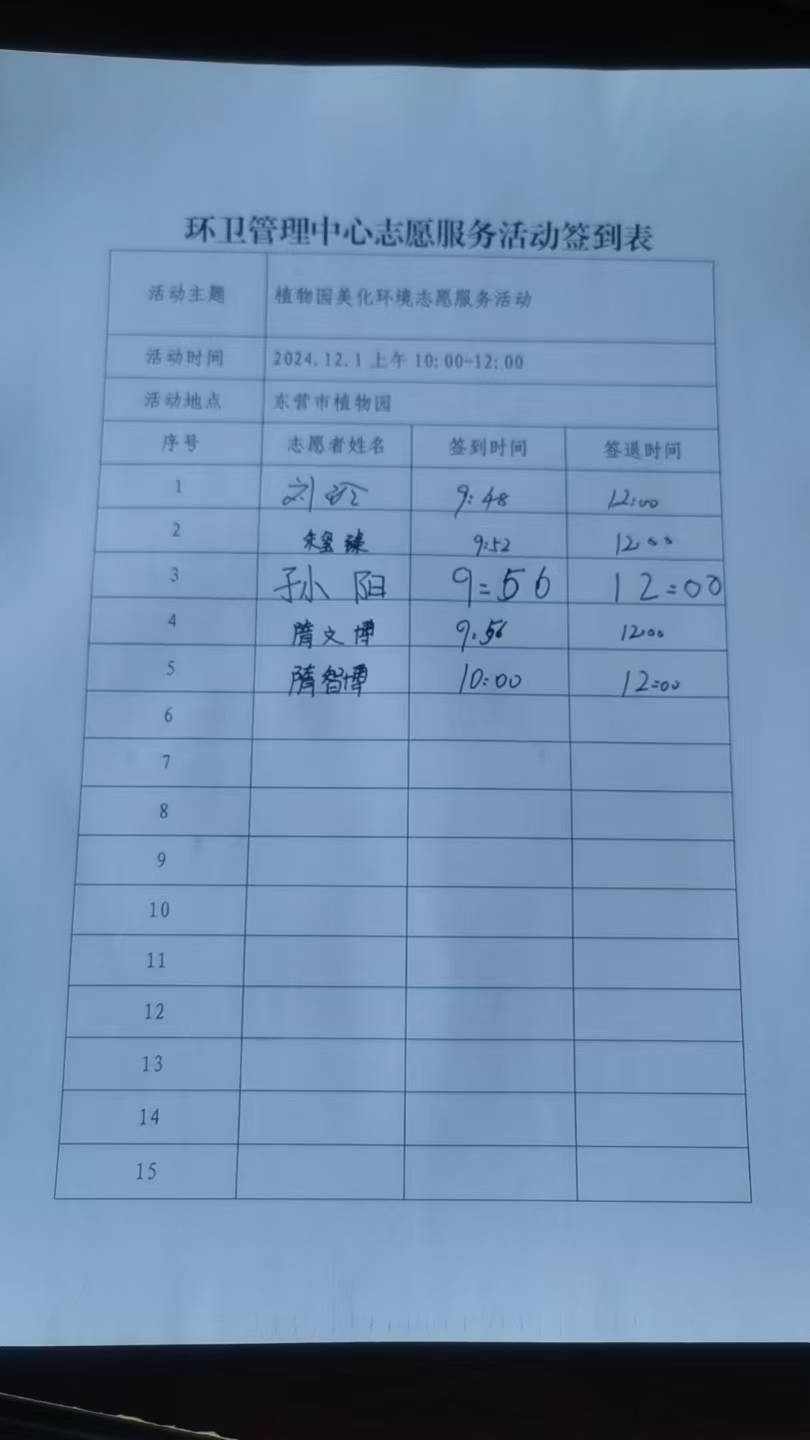 环卫管理中心志愿服务活动签到表
活动主题 植物园美化环境志愿服务活动
活动时间 2024.12.1上午10:00-12:00
活动地点 东营市植物园
序号 志愿者姓名 签到时间 签退时间
1 刘 9:48 12:00
2 9:52 12:00
3 孙阳 9:56 12:00
4 隋文博 9:56 12:00
5 隋智博 10:00 12:00
6
7
8
9
10
11
12
13
14
15